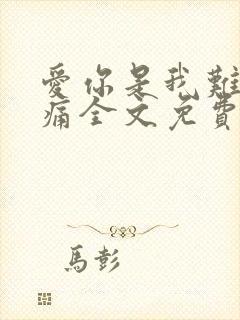 愛你是我難
痛全文免費
馬彭